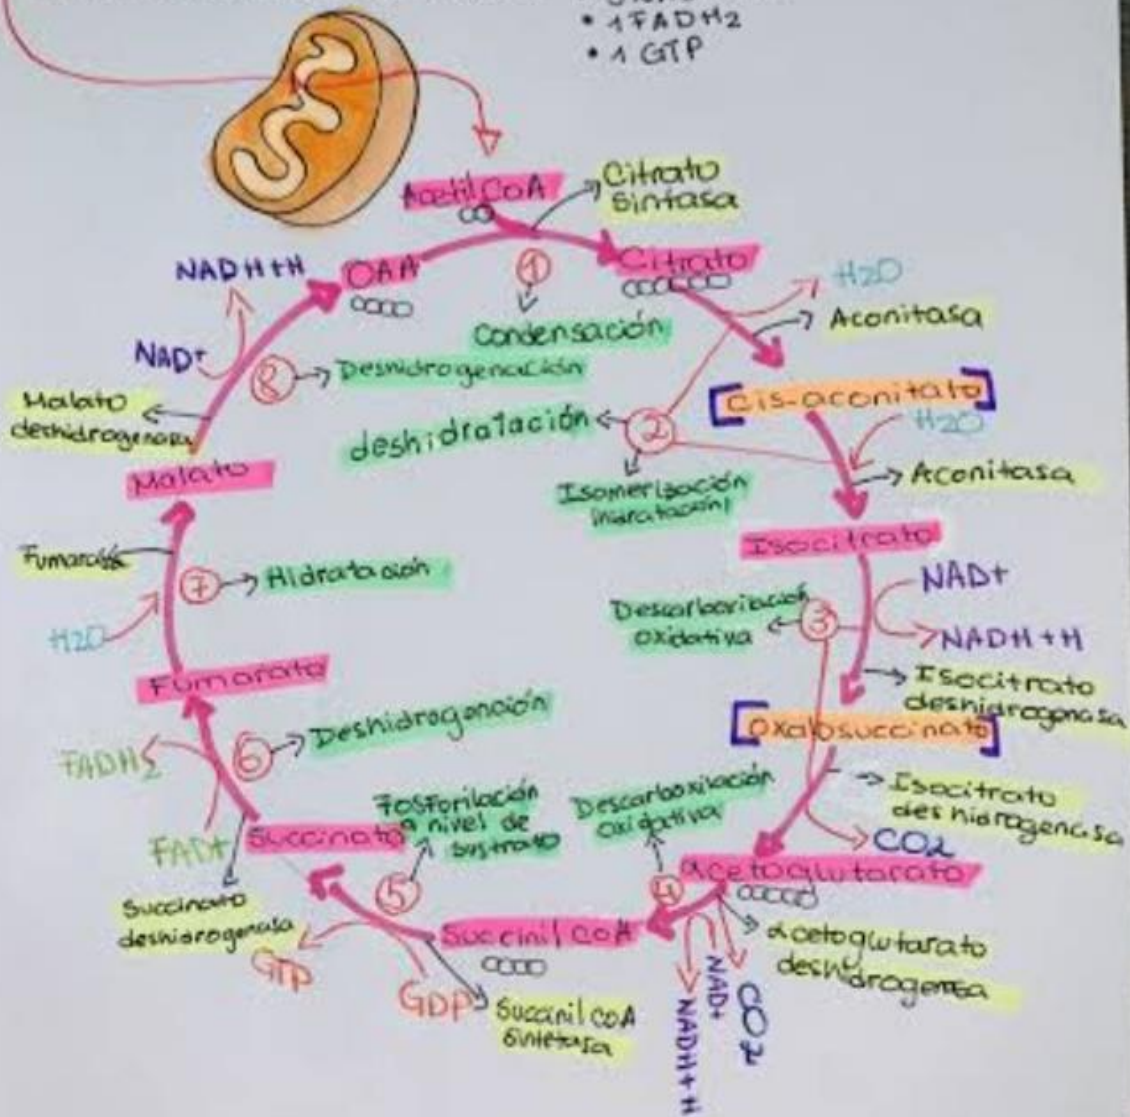 • 1 FADH2
• 1 GTP
Acetil CoA
Citrato
sintasa
NADH+H
OAA
1
Citrato
H2O
Condensación
Aconitasa
NAD+
8
Deshidrogenación
Malato
deshidrogenasa
[cis-aconitato]
H2O
deshidratación
2
Malato
Isomerización
(hidratación)
Aconitasa
Isocitrato
Fumarasa
7
Hidratación
NAD+
Descarboxilación
oxidativa
3
NADH+H
H2O
Isocitrato
deshidrogenasa
Fumarato
[Oxalosuccinato]
Deshidrogenación
6
FADH2
Isocitrato
deshidrogenasa
Fosforilación
a nivel de
sustrato
Descarboxilación
oxidativa
FAD+
Succinato
CO2
αcetoglutarato
5
4
Succinato
deshidrogenasa
Succinil CoA
αcetoglutarato
deshidrogenasa
GTP
GDP
NADH+H
NAD+
CO2
Succinil CoA
sintetasa